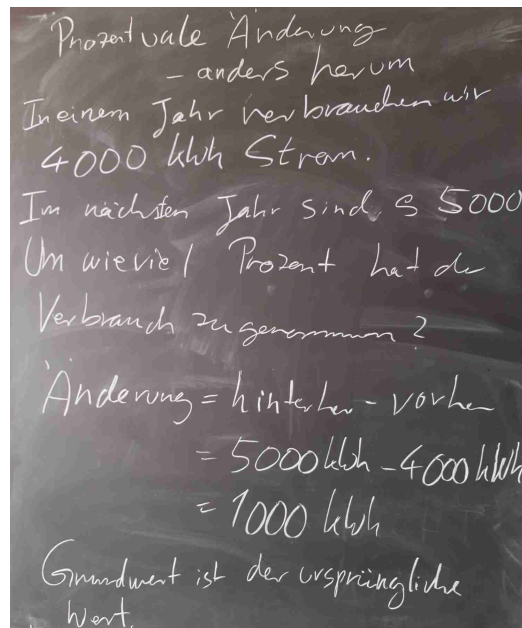 Prozentuale Änderung
- anders herum
In einem Jahr verbrauchen wir
4000 kWh Strom.
Im nächsten Jahr sind s 5000
Um wieviel Prozent hat der
Verbrauch zugenommen?
Änderung = hinterher - vorher
= 5000 kWh - 4000 kWh
= 1000 kWh
Grundwert ist der ursprüngliche
Wert.